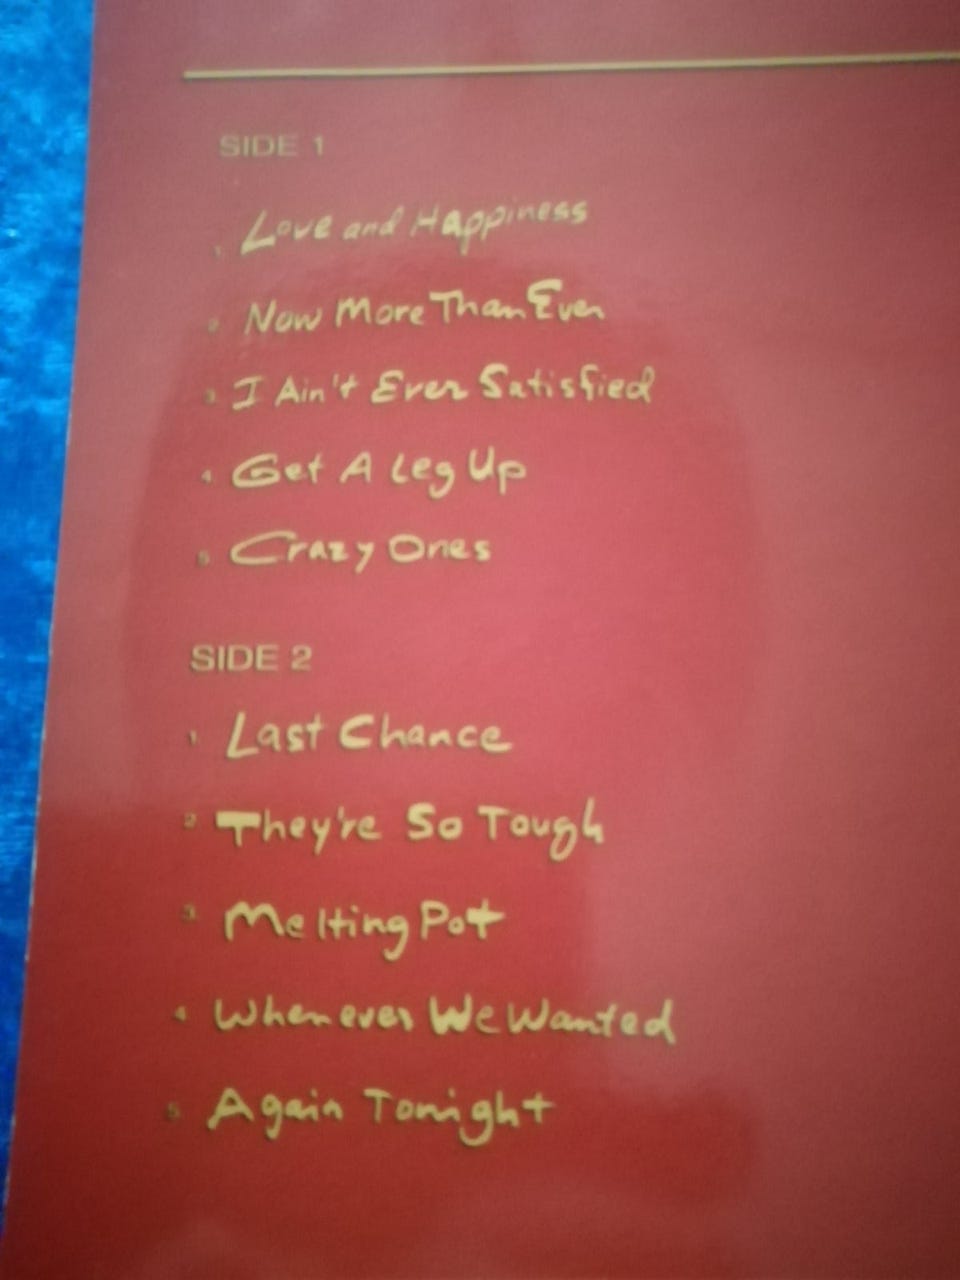 SIDE 1
1. Love and Happiness
2. Now More Than Ever
3. I Ain't Ever Satisfied
4. Get A Leg Up
5. Crazy Ones
SIDE 2
1. Last Chance
2. They're So Tough
3. Melting Pot
4. Whenever We Wanted
5. Again Tonight